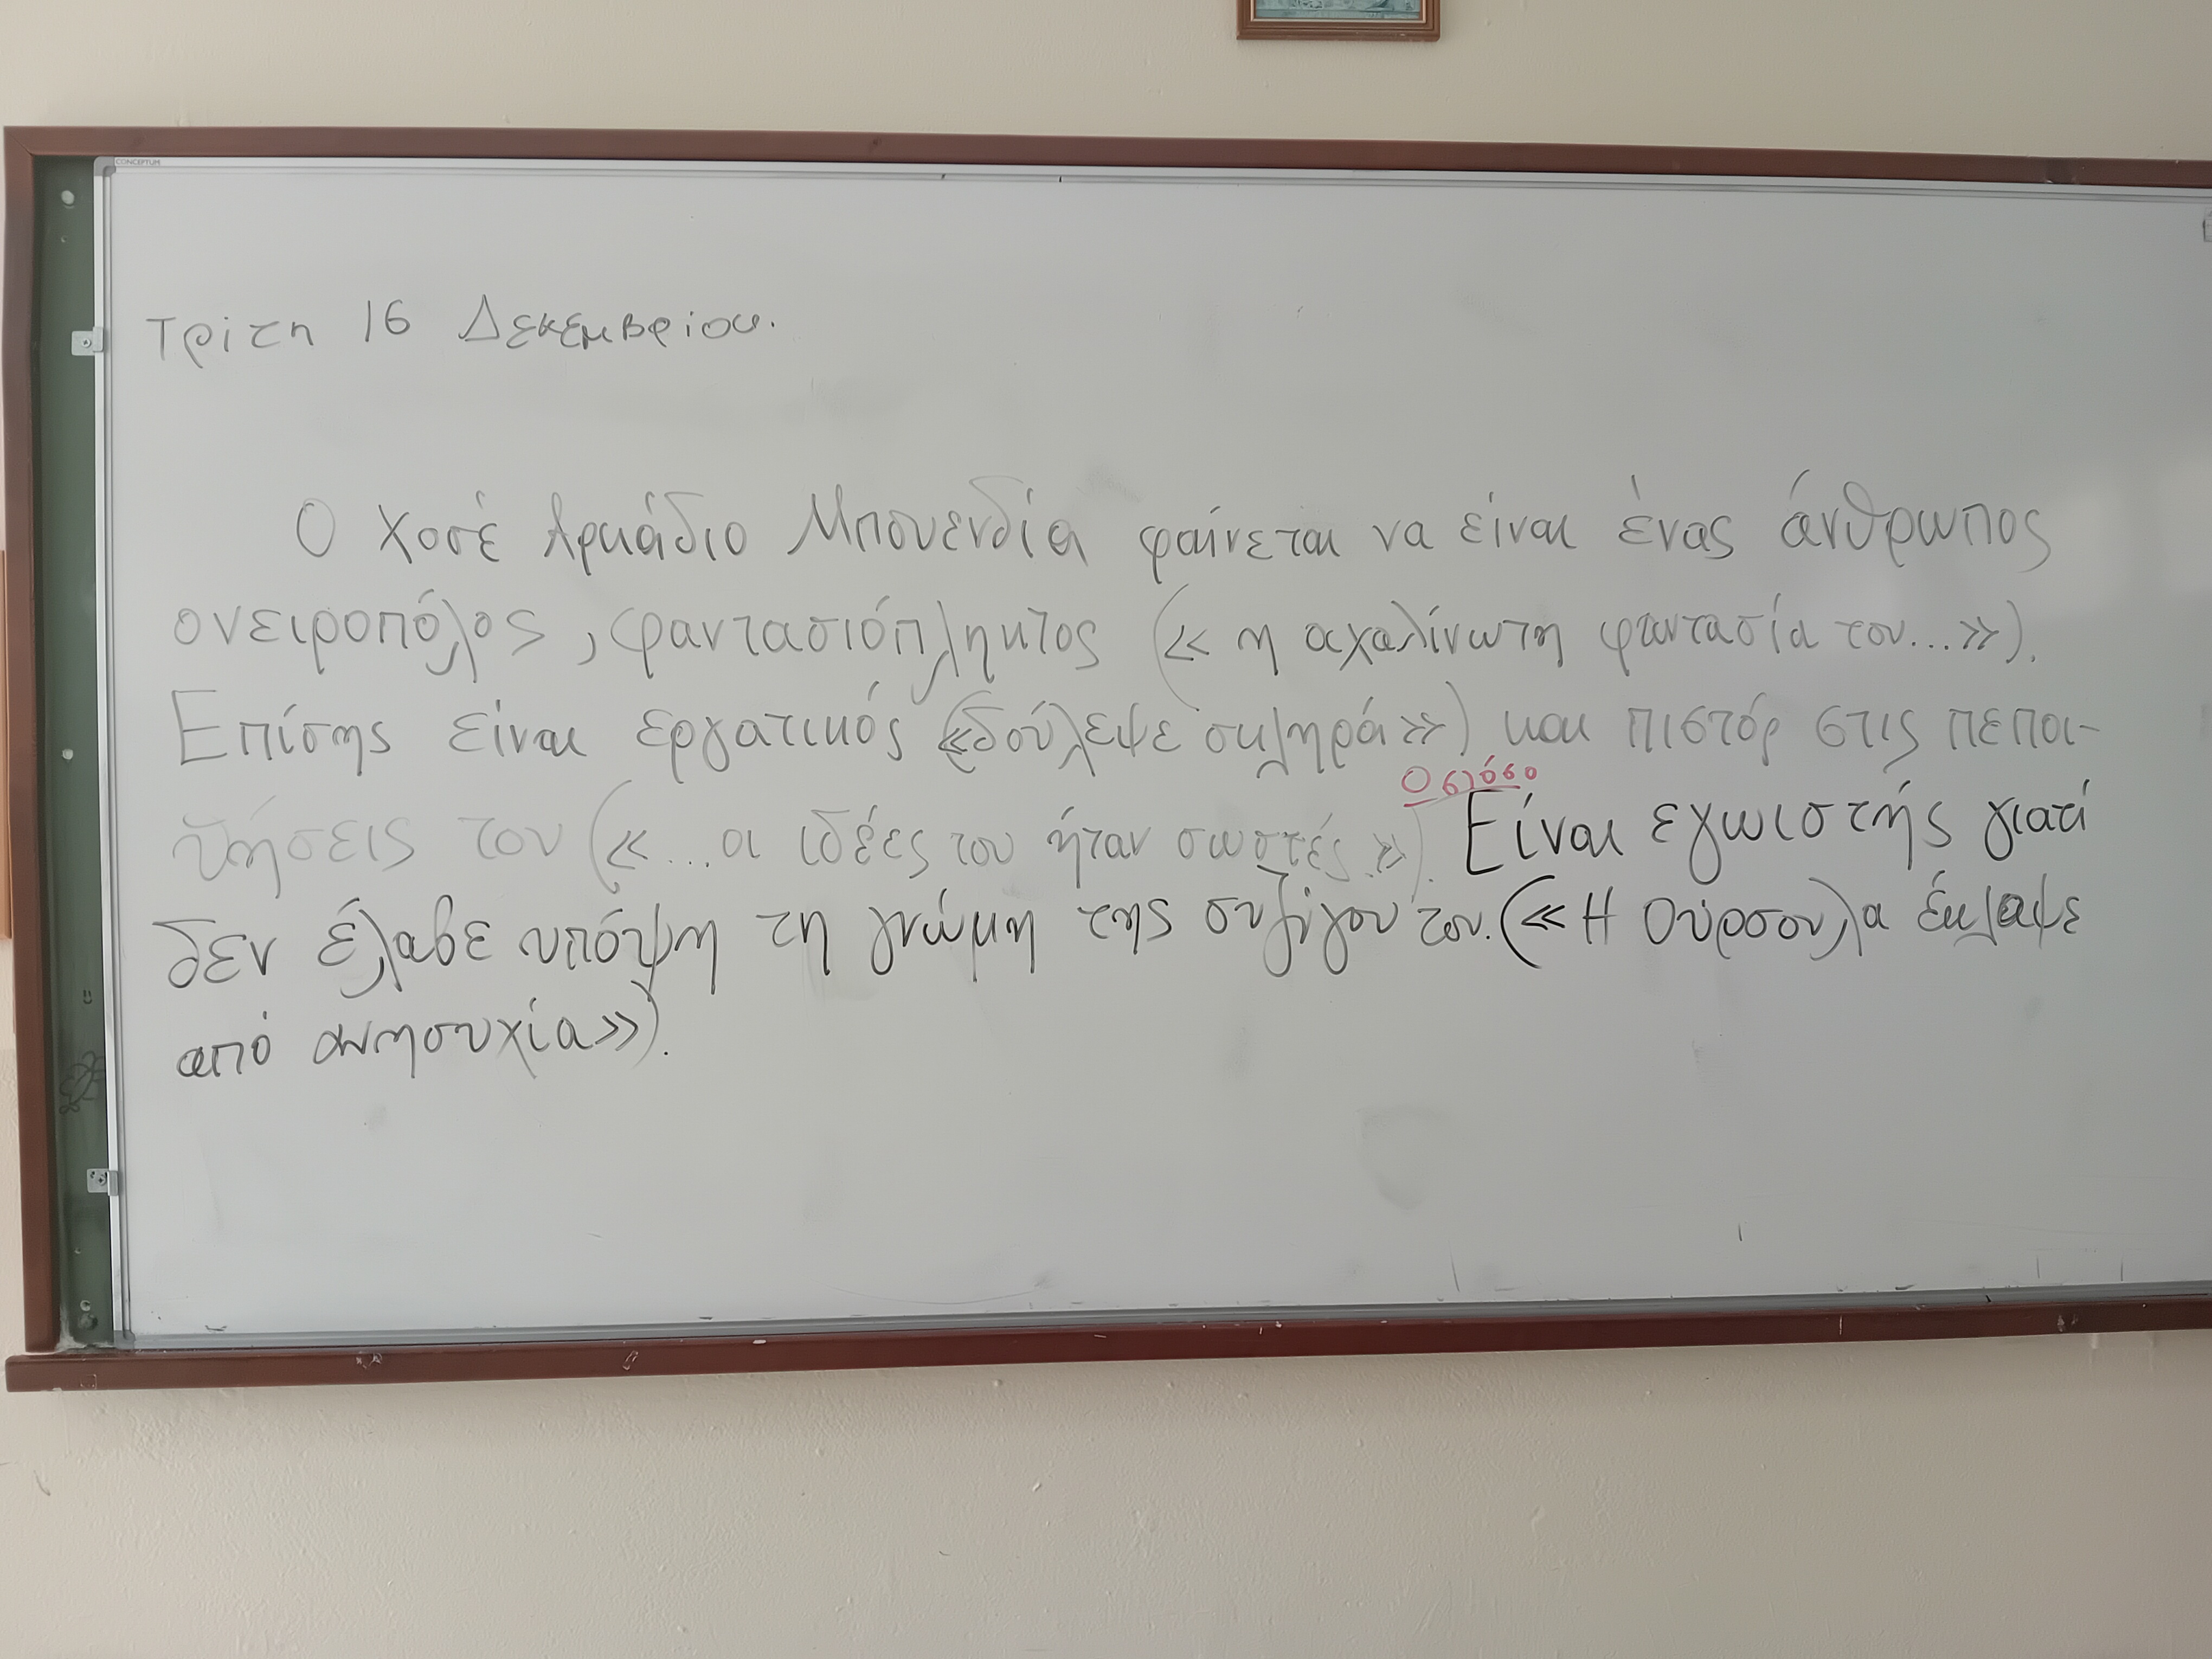 CONCEPTUM
Τρίτη 16 Δεκεμβρίου.
Ο Χοσέ Αρκάδιο Μπουενδία φαίνεται να είναι ένας άνθρωπος
ονειροπόλος, φαντασιόπληκτος (« η αχαλίνωτη φαντασία του...»).
Επίσης είναι εργατικός («δούλεψε σκληρά») και πιστός στις πεποι-
θήσεις του («...οι ιδέες του ήταν σωστές.»). Είναι εγωιστής γιατί
Ωστόσο
δεν έλαβε υπόψη τη γνώμη της συζύγου του. («Η Ούρσουλα έκλαψε
από ανησυχία»).